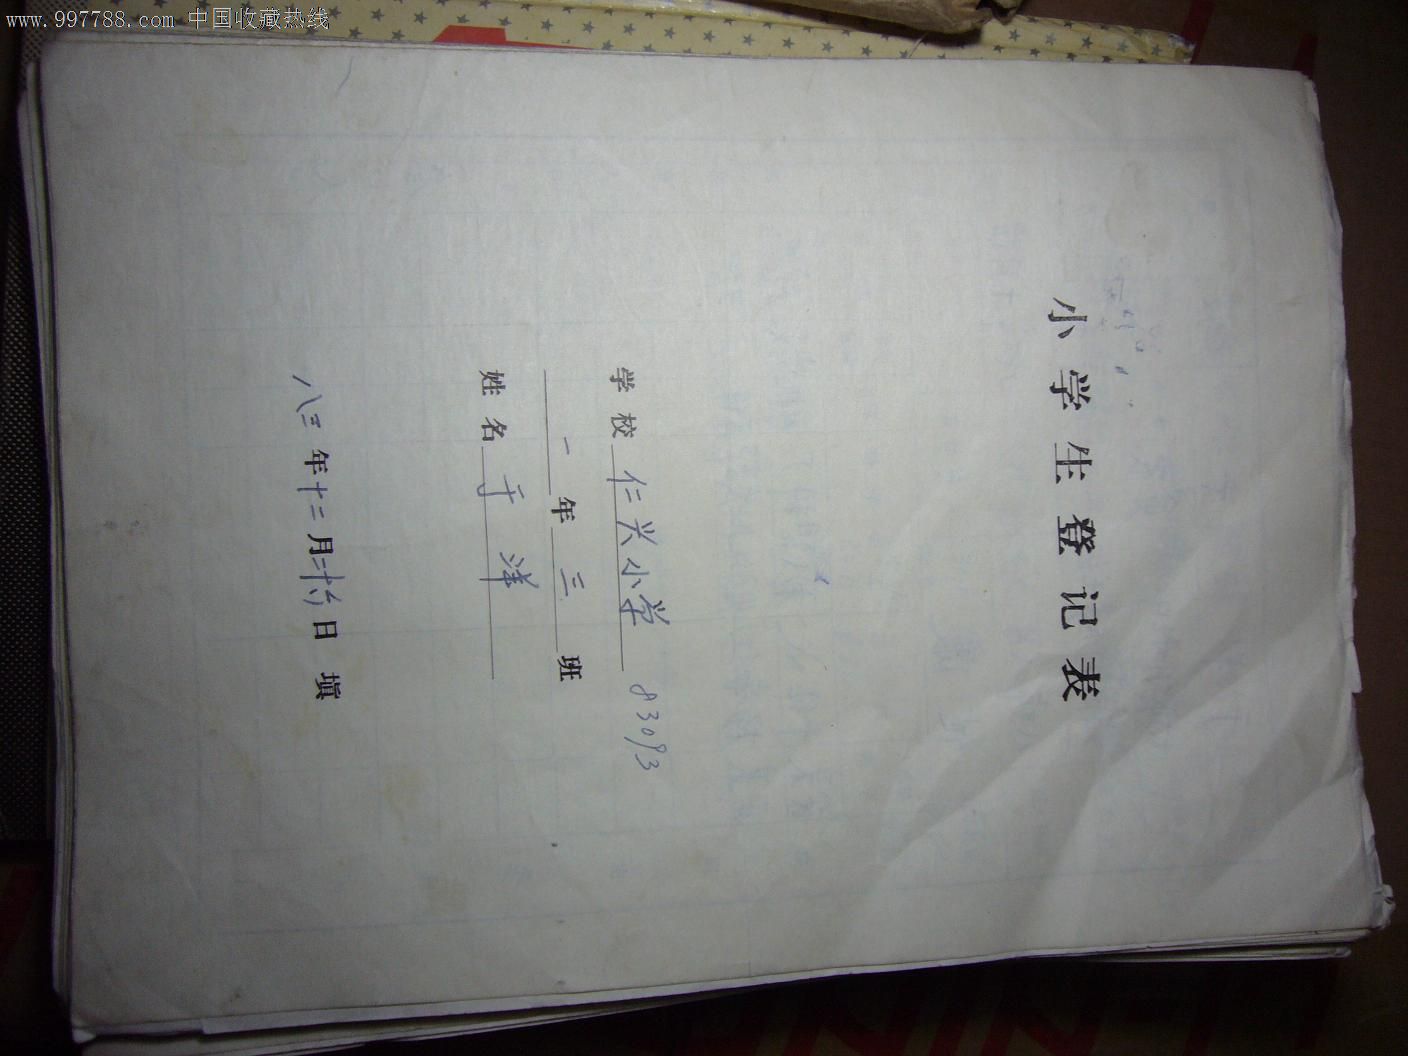 www.997788.com 中国收藏热线
小学生登记表
学校 仁兴小学 83093
一年三班
姓名 于洋
八三年十二月二十六日 填